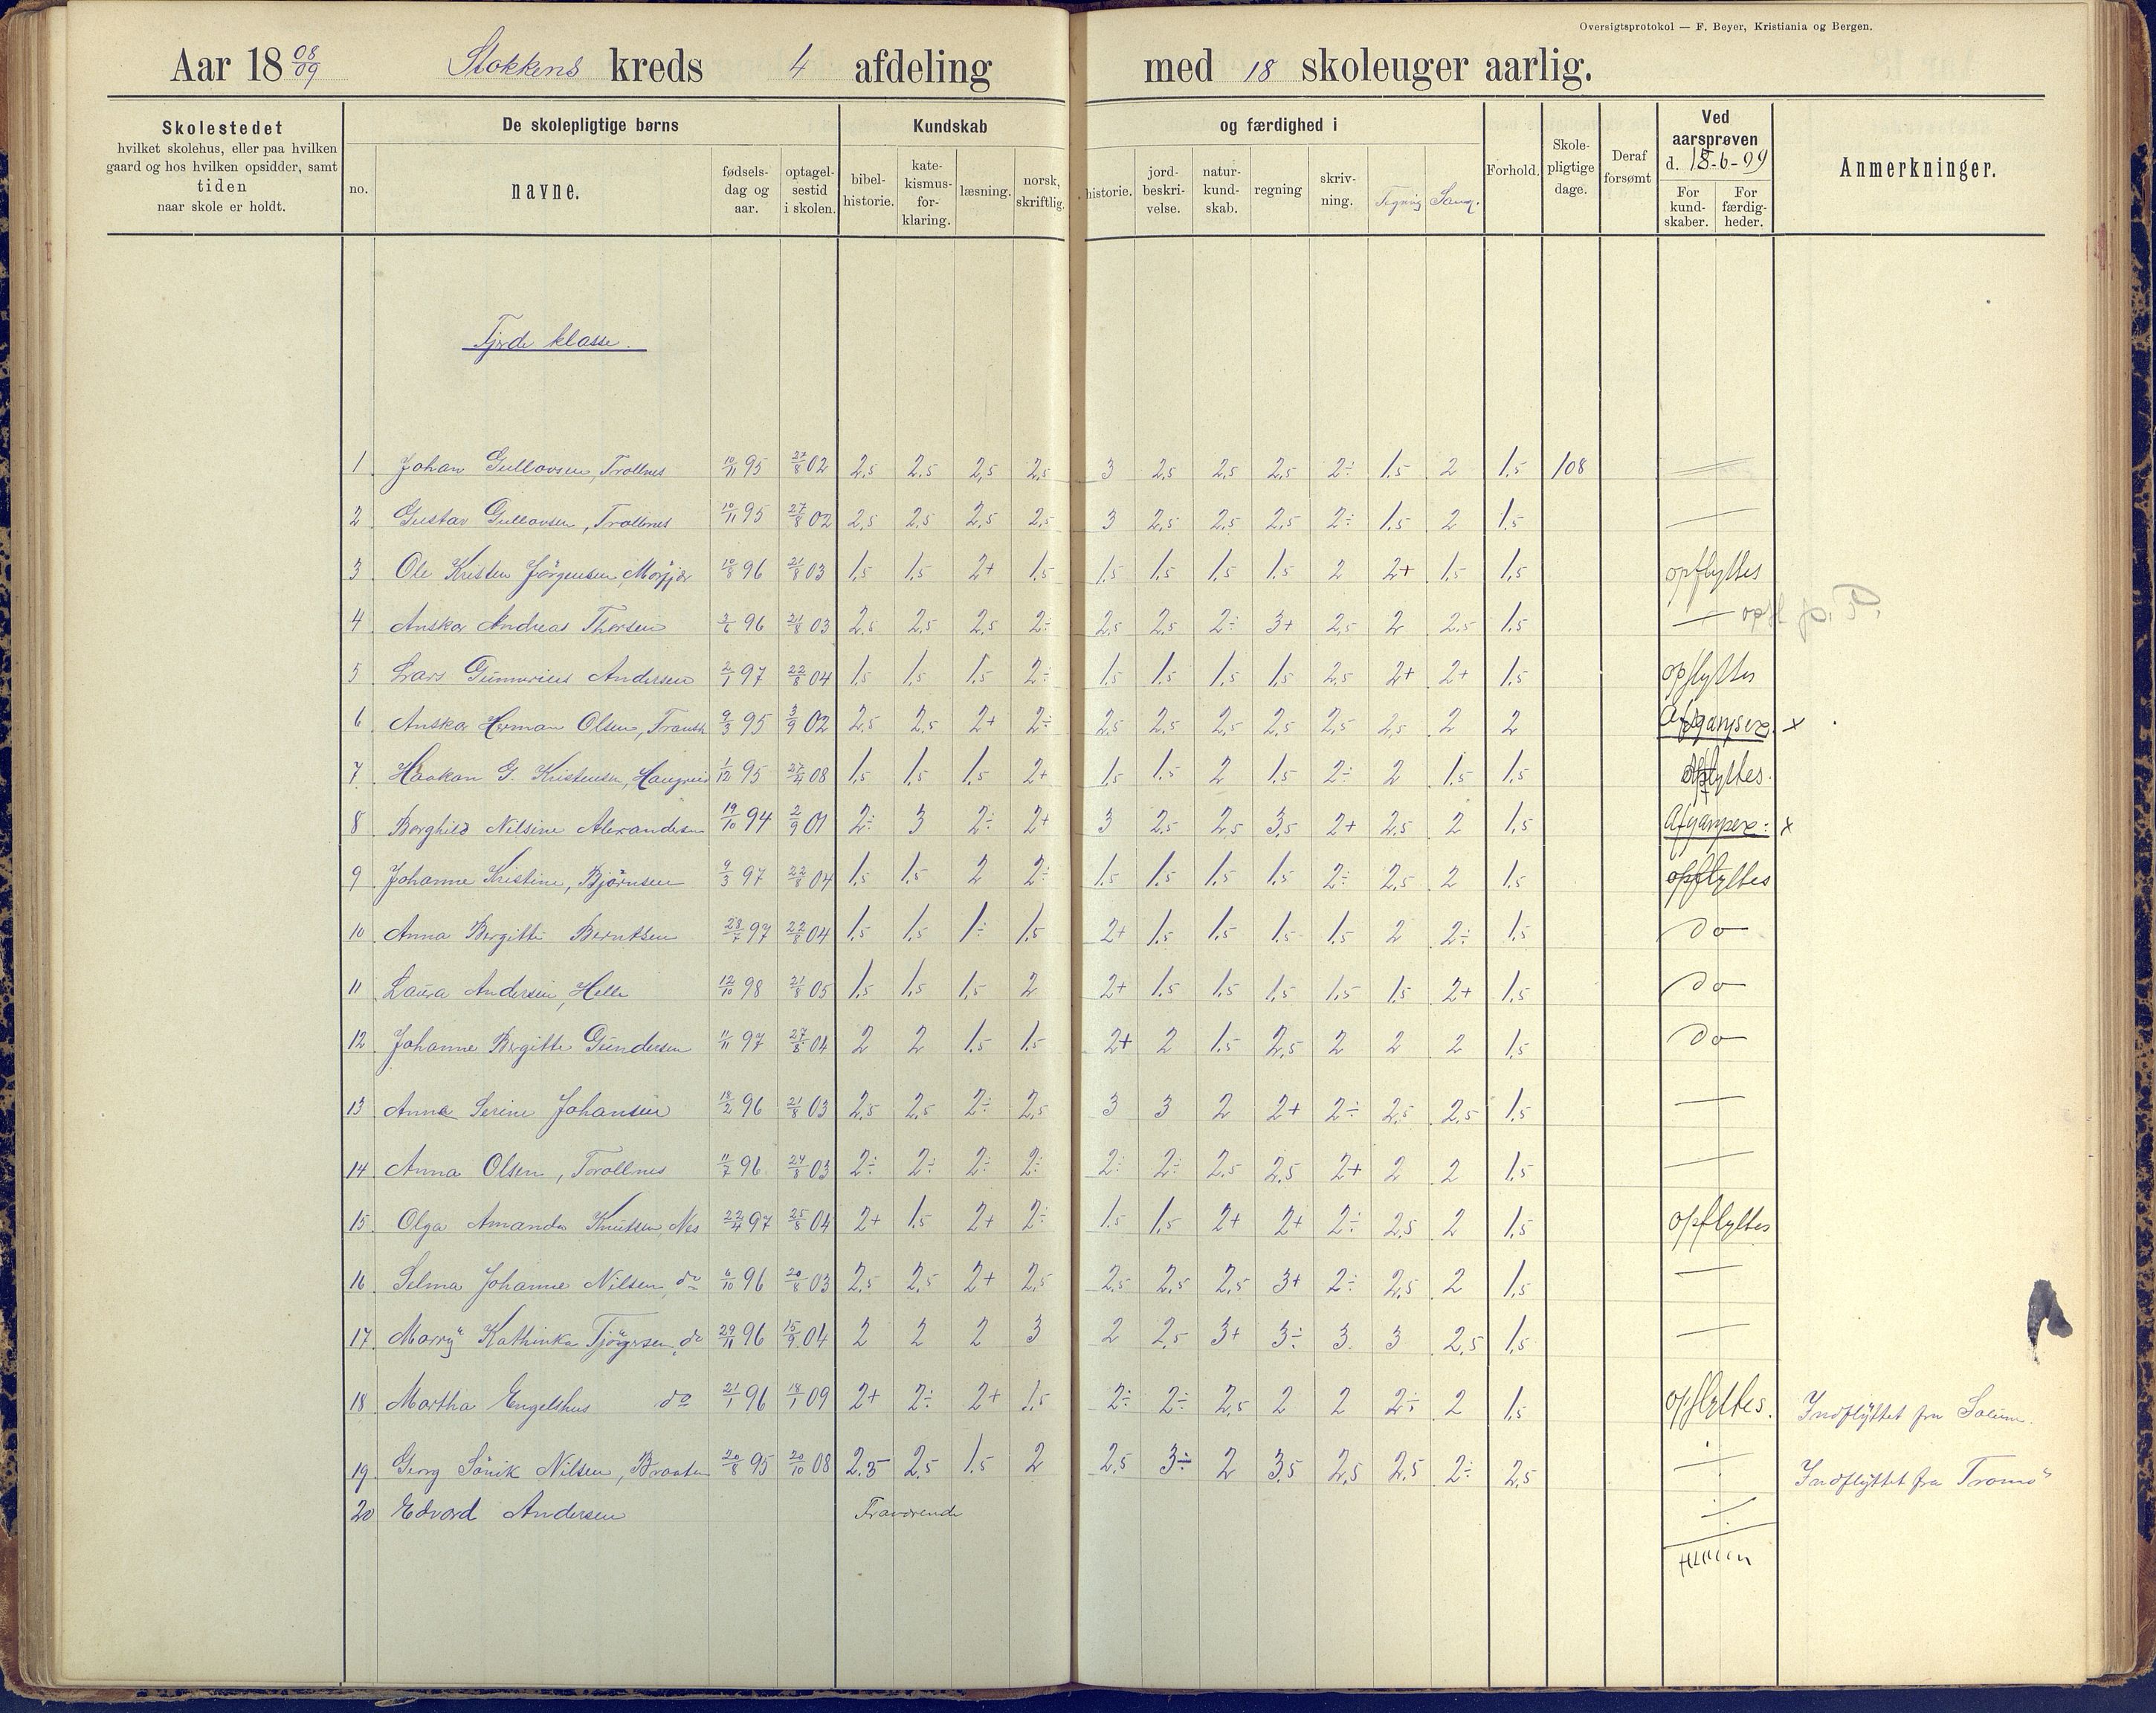 Oversigtsprotokol — F. Beyer, Kristiania og Bergen.
Aar 18 08/09 Stokkens kreds 4 afdeling med 18 skoleuger aarlig.
Skolestedet
hvilket skolehus, eller paa hvilken
gaard og hos hvilken opsidder, samt
tiden
naar skole er holdt.
De skolepligtige børns
no.
navne.
fødsels-
dag og
aar.
optagel-
sestid
i skolen.
Kundskab
bibel-
historie.
kate-
kismus-
for-
klaring.
læsning.
norsk,
skriftlig.
og færdighed i
historie.
jord-
beskri-
velse.
natur-
kund-
skab.
regning
skriv-
ning.
Tegning
Sang.
Forhold.
Skole-
pligtige
dage.
Deraf
forsømt
Ved
aarsprøven
d. 18-6-09
For
kund-
skaber.
For
færdig-
heder.
Anmerkninger.
Fjerde klasse.
1 Johan Gullovsen, Trollnes 10/11 95 27/8 02 2,5 2,5 2,5 2,5 3 2,5 2,5 2,5 2÷ 1,5 2 1,5 108 —
2 Gustav Gullovsen, Trollnes 10/11 95 27/8 02 2,5 2,5 2,5 2,5 3 2,5 2,5 2,5 2÷ 1,5 2 1,5 —
3 Ole Kristen Jörgensen, 10/8 96 21/8 03 1,5 1,5 2+ 1,5 1,5 1,5 1,5 1,5 2 2+ 1,5 1,5 opflyttes
4 Anskar Andreas Thorsen 2/6 96 21/8 03 2,5 2,5 2,5 2÷ 2,5 2,5 2÷ 3+ 2,5 2 2,5 1,5 — opfl p. P.
5 Lars Gunnerius Andersen 2/1 97 22/8 04 1,5 1,5 1,5 2÷ 1,5 1,5 1,5 1,5 2,5 2+ 2+ 1,5 opflyttes
6 Anskar Herman Olsen, 9/3 95 3/9 02 2,5 2,5 2+ 2÷ 2,5 2,5 2,5 2,5 2,5 2,5 2 2 Afgangsex. x
7 Haakon G. Kristensen, 1/12 95 27/4 08 1,5 1,5 1,5 2+ 1,5 1,5 2 1,5 2÷ 2 1,5 1,5 opflyttes.
8 Borghild Nilsine Alexandersen 19/10 94 2/9 01 2÷ 3 2÷ 2+ 3 2,5 2,5 3,5 2+ 2,5 2 1,5 Afgangsex: x
9 Johanne Kristine, Bjørnsen 9/3 97 22/8 04 1,5 1,5 2 2÷ 1,5 1,5 1,5 1,5 2÷ 2,5 2 1,5 opflyttes
10 Anna Bergitte Berntsen 28/7 97 22/8 04 1,5 1,5 1÷ 1,5 2+ 1,5 1,5 1,5 1,5 2 2÷ 1,5 do
11 Laura Andersen, Helle 12/10 98 21/8 05 1,5 1,5 1,5 2 2+ 1,5 1,5 1,5 1,5 1,5 2+ 1,5 do
12 Johanne Birgitte Gundersen 11/11 97 27/8 04 2 2 1,5 1,5 2+ 2 1,5 2,5 2 2 2 1,5 do
13 Anna Serine Johansen 18/2 96 21/8 03 2,5 2,5 2÷ 2,5 3 3 2 2+ 2÷ 2,5 2,5 1,5 —
14 Anna Olsen, Trollnes 11/7 96 24/8 03 2÷ 2÷ 2÷ 2÷ 2÷ 2÷ 2,5 2,5 2+ 2 2 1,5 —
15 Olga Amanda Knutsen, Nes 22/4 97 25/8 04 2+ 1,5 2+ 2÷ 1,5 1,5 2+ 2+ 2÷ 2,5 2 1,5 opflyttes
16 Selma Johanne Nilsen, do 6/10 96 20/8 03 2,5 2,5 2+ 2,5 2,5 2,5 2,5 3+ 2÷ 2,5 2 1,5 —
17 Marry Kathinka Tjögersen, do 29/11 96 15/9 04 2 2 2 3 2 2,5 3+ 3÷ 3 3 2,5 1,5 —
18 Martha Engelshus do 21/1 96 18/1 09 2+ 2÷ 2+ 1,5 2÷ 2÷ 2,5 2 2 2÷ 2 1,5 opflyttes. Indflyttet fra Solum.
19 Georg Sörik Nilsen, Braaten 20/8 95 20/10 08 2,5 2,5 1,5 2 2,5 3÷ 2 3,5 2,5 2,5 2÷ 2,5 ÷ Indflyttet fra Tromö
20 Edvard Andersen Fraværende ÷